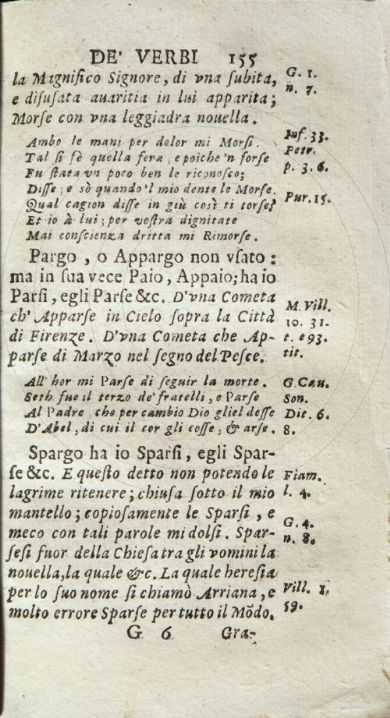 DE' VERBI 155
la Magnifico Signore, di vna subita,
e disusata auaritia in lui apparita;
Morse con vna leggiadra nouella.
G. 1.
n. 7.
Ambo le mani per dolor mi Morsi.
Tal si fè quella fera, e poiche'n forse
Fu stata vn poco ben le riconosco;
Disse; e sò quando'l mio dente le Morse.
Qual cagion disse in giù così ti torse?
Et io à lui; per vostra dignitate
Mai conscienza dritta mi Rimorse.
Inf. 33.
Petr.
p. 3. 6.
Pur. 15.
Pargo, o Appargo non vsato:
ma in sua vece Paio, Appaio; ha io
Parsi, egli Parse &c. D'vna Cometa
ch' Apparse in Cielo sopra la Città
di Firenze. D'vna Cometa che Ap-
parse di Marzo nel segno del Pesce.
M. Vill.
10. 31.
t. e 93.
tit.
All' hor mi Parse di seguir la morte.
Seth fue il terzo de' fratelli, e Parse
Al Padre, che per cambio Dio gliel desse
D'Abel, di cui il cor gli cosse, & arse.
G. Cau.
Son.
Dit. 6.
8.
Spargo ha io Sparsi, egli Spar-
se &c. E questo detto non potendo le
lagrime ritenere; chiusa sotto il mio
mantello; copiosamente le Sparsi, e
meco con tali parole mi dolsi. Spar-
sesi fuor della Chiesa tra gli vomini la
nouella, la quale &c. La quale heresia
per lo suo nome si chiamò Arriana, e
molto errore Sparse per tutto il Mõdo.
Fiam.
l. 4.
G. 4.
n. 8.
Vill. 1.
59.
G 6 Gra-